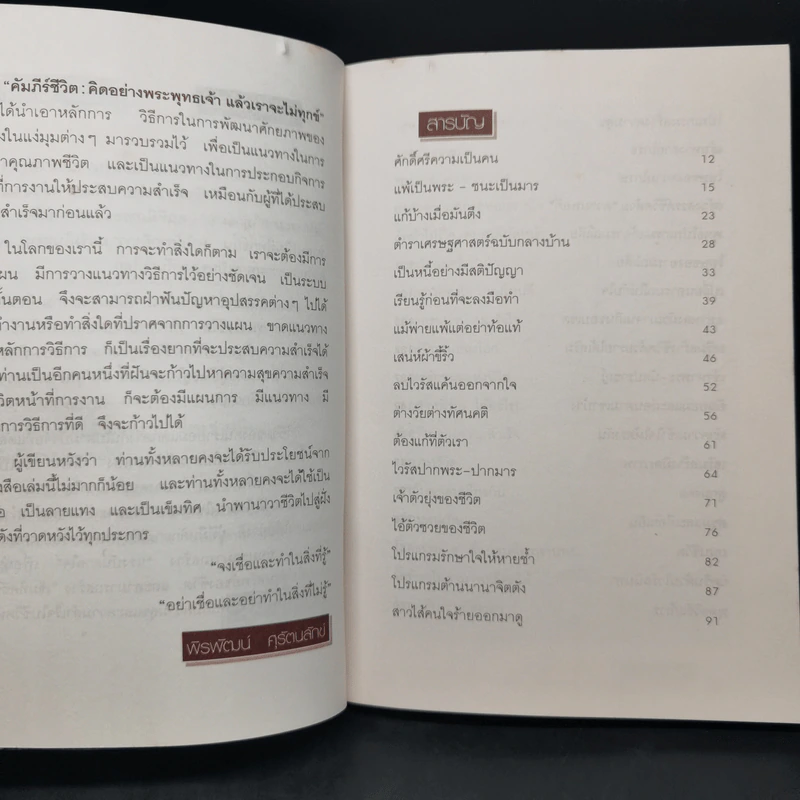 "คัมภีร์ชีวิต : คิดอย่างพระพุทธเจ้า แล้วเราจะไม่ทุกข์"
ได้นำเอาหลักการ วิธีการในการพัฒนาศักยภาพของ
ในแง่มุมต่างๆ มารวบรวมไว้ เพื่อเป็นแนวทางในการ
คุณภาพชีวิต และเป็นแนวทางในการประกอบกิจการ
ที่การงานให้ประสบความสำเร็จ เหมือนกับผู้ที่ได้ประสบ
สำเร็จมาก่อนแล้ว
ในโลกของเรานี้ การจะทำสิ่งใดก็ตาม เราจะต้องมีการ
ผน มีการวางแนวทางวิธีการไว้อย่างชัดเจน เป็นระบบ
ั้นตอน จึงจะสามารถฝ่าฟันปัญหาอุปสรรคต่างๆ ไปได้
ทำงานหรือทำสิ่งใดที่ปราศจากการวางแผน ขาดแนวทาง
หลักการวิธีการ ก็เป็นเรื่องยากที่จะประสบความสำเร็จได้
ท่านเป็นอีกคนหนึ่งที่ฝันจะก้าวไปหาความสุขความสำเร็จ
วิตหน้าที่การงาน ก็จะต้องมีแผนการ มีแนวทาง มี
การวิธีการที่ดี จึงจะก้าวไปได้
ผู้เขียนหวังว่า ท่านทั้งหลายคงจะได้รับประโยชน์จาก
สือเล่มนี้ไม่มากก็น้อย และท่านทั้งหลายคงจะได้ใช้เป็น
อ เป็นลายแทง และเป็นเข็มทิศ นำพานาวาชีวิตไปสู่ฝั่ง
ดังที่วาดหวังไว้ทุกประการ
"จงเชื่อและทำในสิ่งที่รู้"
"อย่าเชื่อและอย่าทำในสิ่งที่ไม่รู้"
พิรพัฒน์ ศุรัตนลักข์
สารบัญ
ศักดิ์ศรีความเป็นคน 12
แพ้เป็นพระ - ชนะเป็นมาร 15
แก้บ้างเมื่อมันตึง 23
ตำราเศรษฐศาสตร์ฉบับกลางบ้าน 28
เป็นหนี้อย่างมีสติปัญญา 33
เรียนรู้ก่อนที่จะลงมือทำ 39
แม้พ่ายแพ้แต่อย่าท้อแท้ 43
เสน่ห์ผ้าขี้ริ้ว 46
ลบไวรัสแค้นออกจากใจ 52
ต่างวัยต่างทัศนคติ 56
ต้องแก้ที่ตัวเรา 61
ไวรัสปากพระ-ปากมาร 64
เจ้าตัวยุ่งของชีวิต 71
ไอ้ตัวซวยของชีวิต 76
โปรแกรมรักษาใจให้หายช้ำ 82
โปรแกรมต้านนานาจิตตัง 87
สาวไส้คนใจร้ายออกมาดู 91